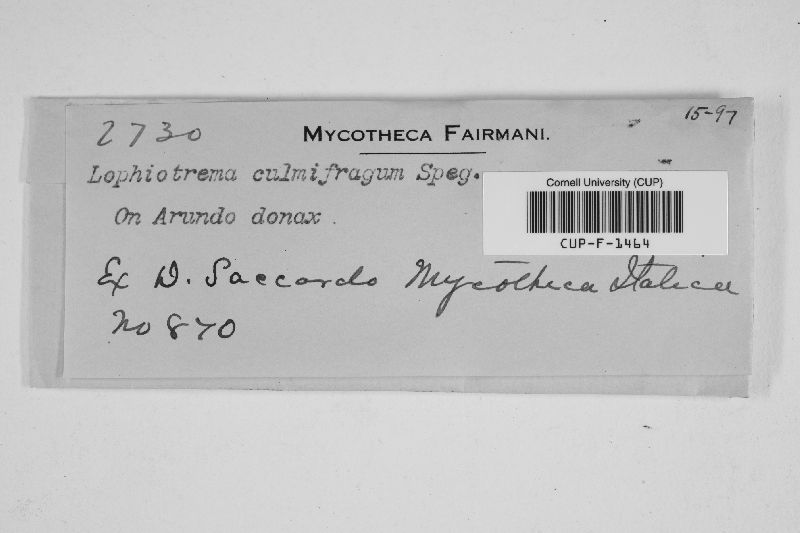 2730
MYCOTHECA FAIRMANI.
15-97
Lophiotrema culmifragum Speg.
On Arundo donax.
Cornell University (CUP)
CUP-F-1464
Ex D. Saccardo Mycotheca Italica
No 870